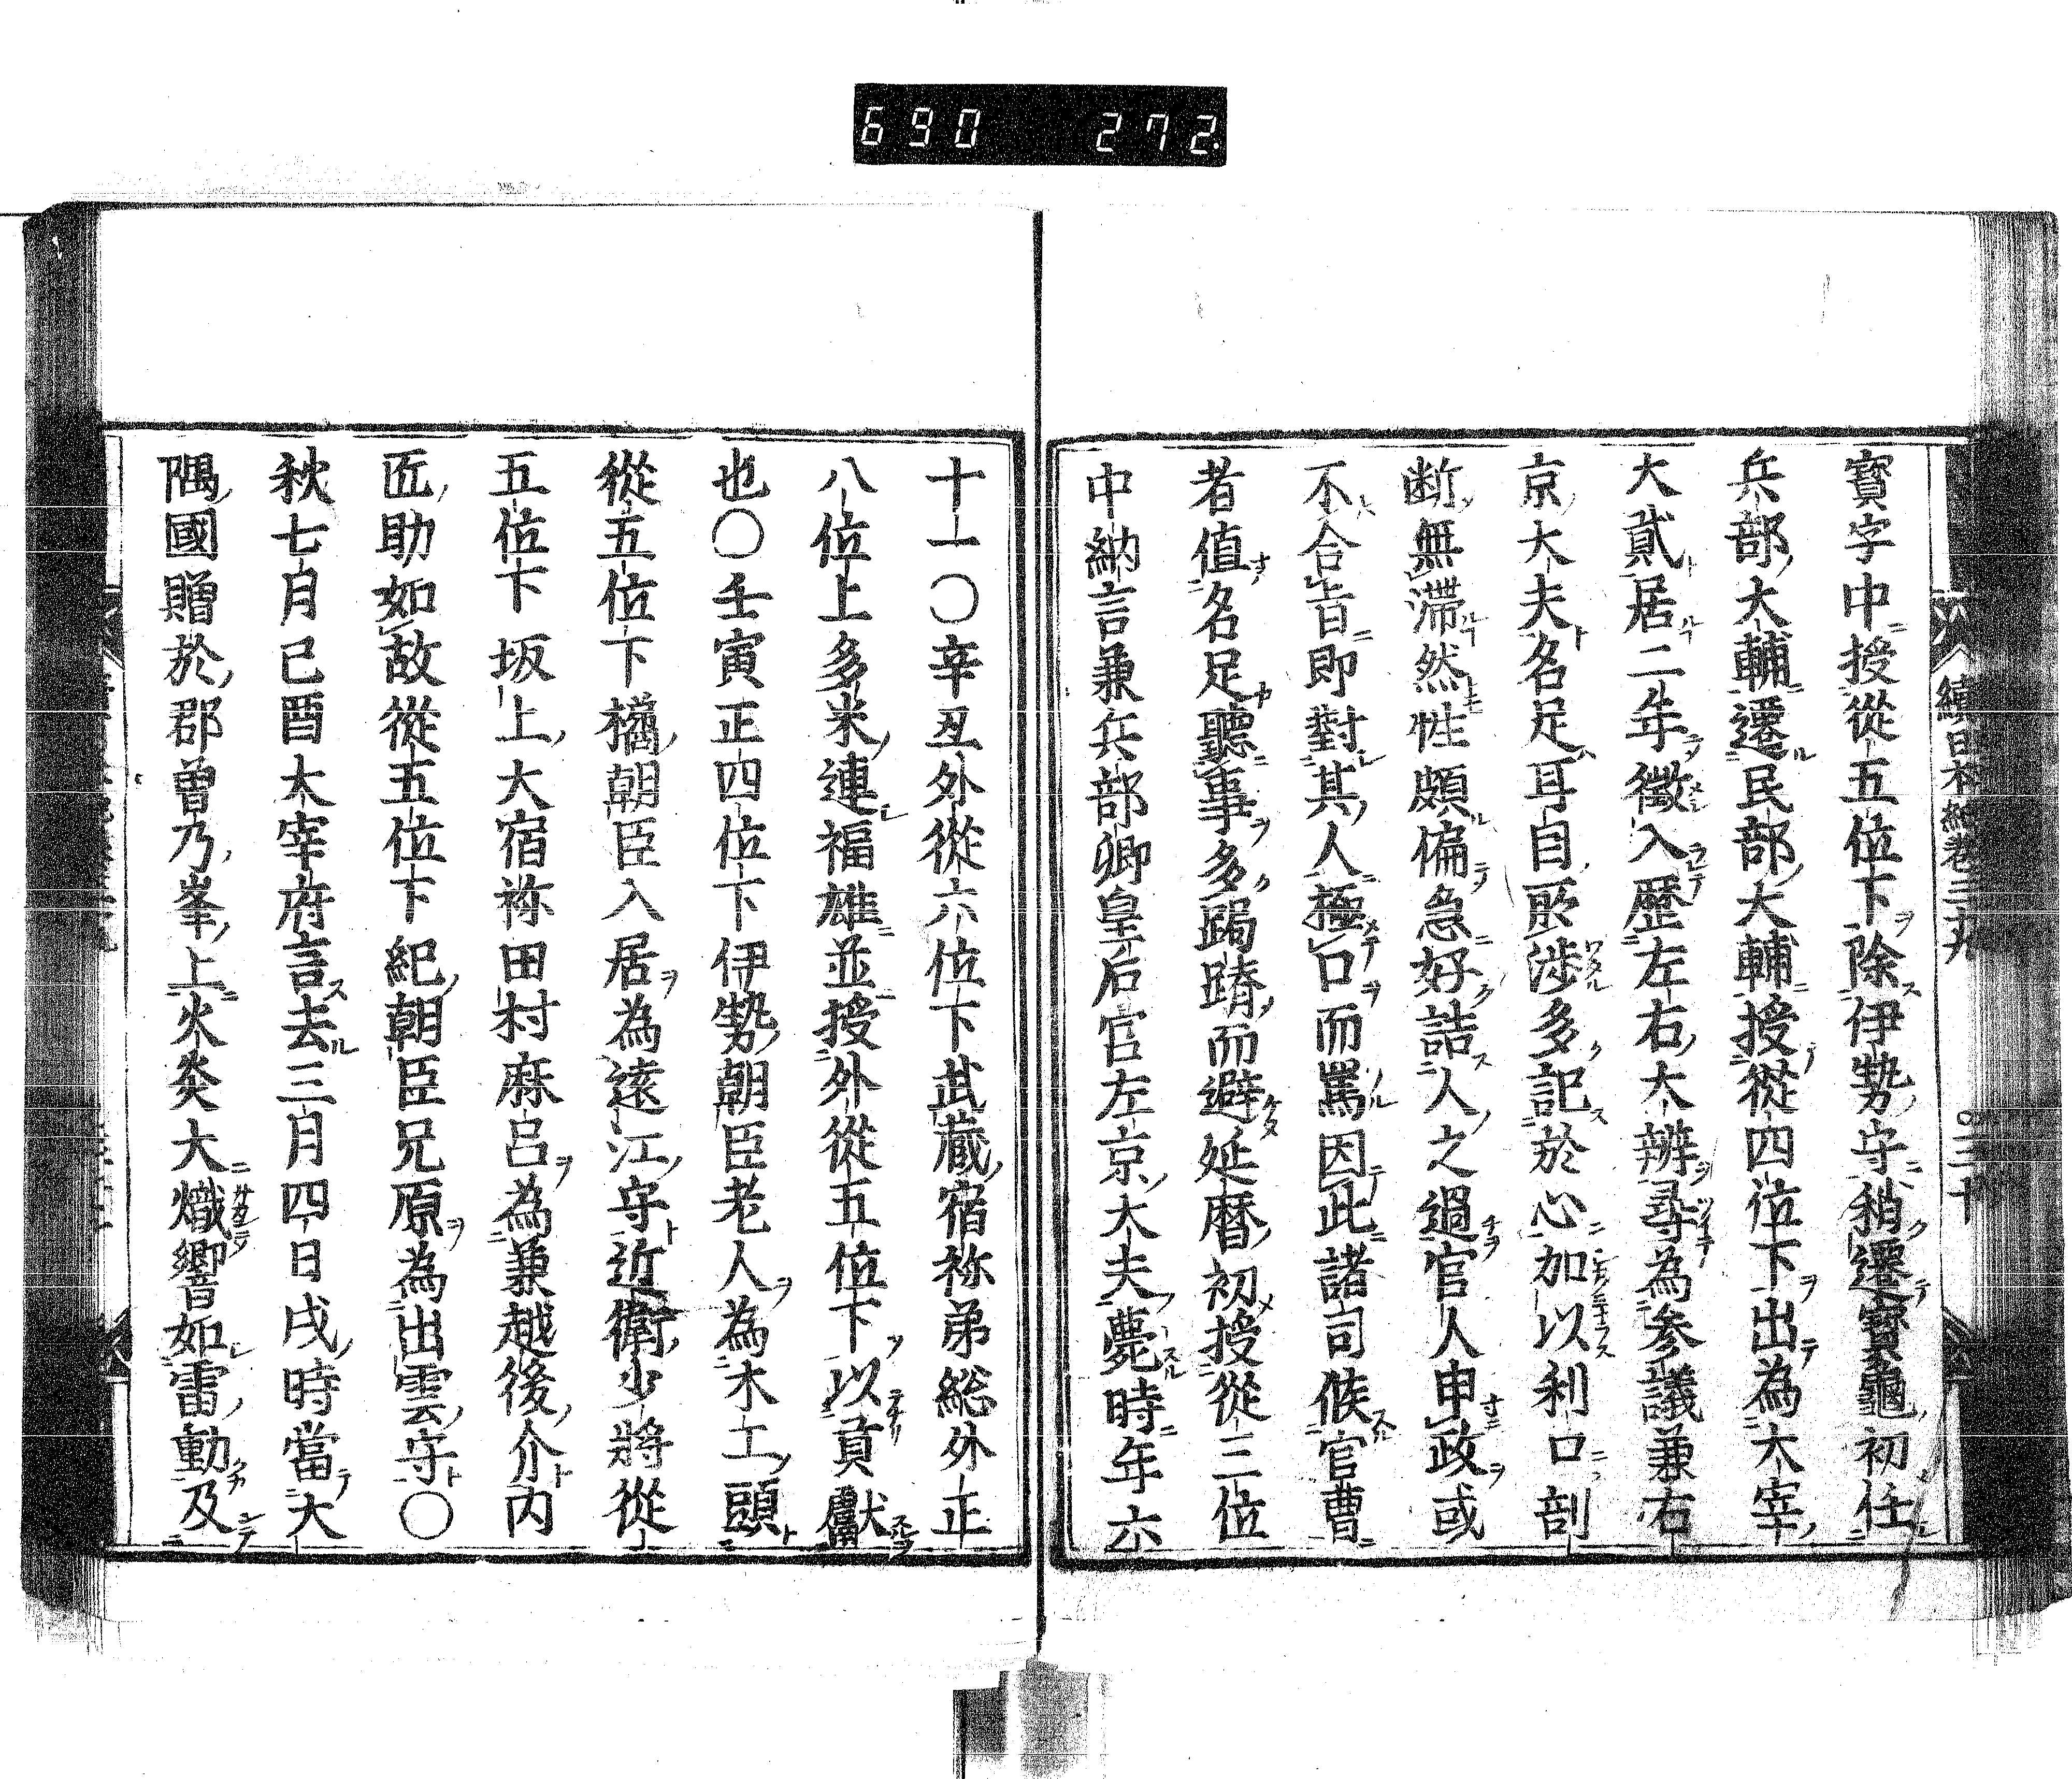 690 272
續日本紀卷三九
○三十
寶字中授從五位下除伊勢守稍遷寶龜初任
兵部大輔遷民部大輔授從四位下出為太宰
大貳居二年徵入歷左右大辨尋為參議兼右
京大夫名足耳目所涉多記於心加以利口剖
断無滯然性頗偏急好詰人之過官人申政或
不合旨即對其人極口而罵因此諸司候官曹
者值名足聽事多跼蹐而避延曆初授從三位
中納言兼兵部卿皇后宮左京大夫薨時年六
十一○辛丑外從六位下武蔵宿祢弟総外正
八位上多米連福雄並授外從五位下以貢獻
也○壬寅正四位下伊勢朝臣老人為木工頭
從五位下橘朝臣入居為遠江守近衛少將從
五位下坂上大宿祢田村麻呂為兼越後介內
匠助如故從五位下紀朝臣兄原為出雲守○
秋七月己酉太宰府言去三月四日戌時當大
隅國贈於郡曾乃峯上火炎大熾響如雷動及